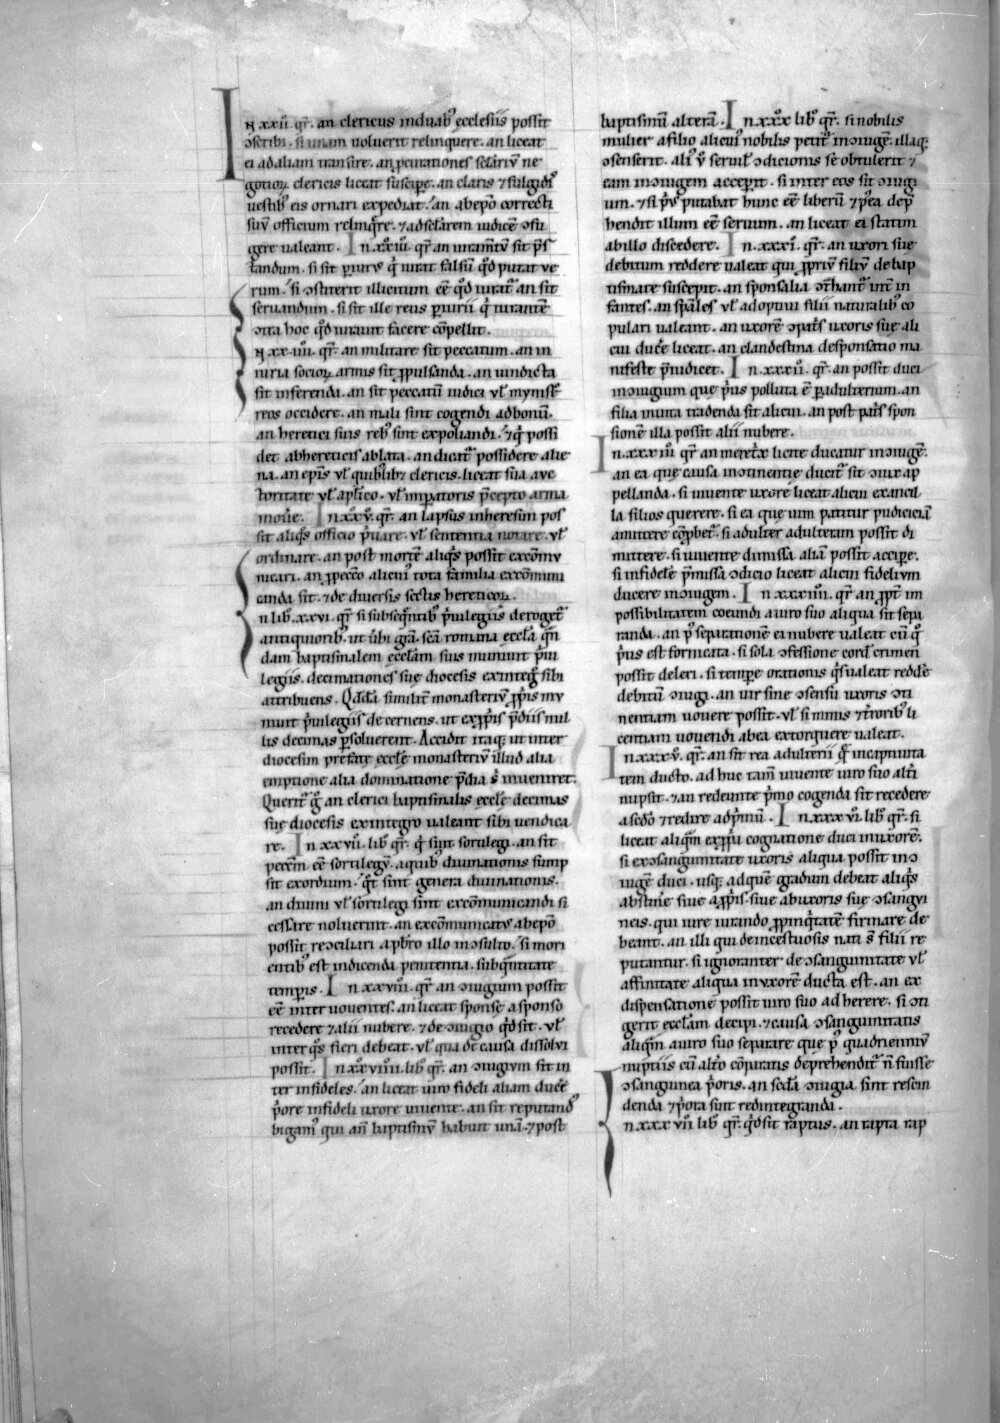 In xxii. qr̄. an clericus in duabꝰ ecclesiis possit
ꝯscribi. si unam uoluerit relinquere. an liceat
ei ad aliam transire. an ꝓcurationes sclariū ne
gotioꝝ clericis liceat suscipe. an claris ⁊ fulgidis
uestibꝰ eis ornari expediat. an ab ep̄o correcti
suū officium relinq̄re. ⁊ ad sclarem iudicē ꝯfu
gere ualeant. In xxiii. qr̄ an iuram̄tū sit p̄s
tandum. si sit piurus q̇ iurat falsū qđ putat ve
rum. si ꝯstiterit illicitum eē qđ iurat̄ an sit
seruandum. si sit ille reus piurii q̇ iurantē
ꝯtra hoc qđ iurauit facere cōpellit.
In xxiiii. qr̄. an militare sit peccatum. an in
iuria socioꝝ armis sit ꝓpulsanda. an uindicta
sit inferenda. an sit peccatū iudici uł ministr̄
reos occidere. an mali sint cogendi ad bonū.
an heretici suis rebꝰ sint expoliandi. ⁊ q̇ possi
det ab hereticis ablata. an dicat̄ possidere alie
na. an epīs uł quibꝰlibꝫ clericis. liceat sua auc
toritate uł aplīco. uł imperatoris p̄cepto arma
mouē. In xxv. qr̄. an lapsus in heresim pos
sit aliq̇s officio p̄uare. uł sententia notare. uł
ordinare. an post mortē aliq̇s possit excōmu
nicari. an ꝓ pecc̄o alicuiꝰ tota familia excōmuni
canda sit. ⁊ de diuersis sectis hereticoꝝ.
In libꝰ. xxvi. qr̄ si subseq̄ntibꝰ p̄uilegiis deroget̄
antiquioribꝰ. ut ūbi grā. scā romana eccła q̄n
dam baptismalem eccłam suis muniuit p̄ui
legiis. decimationes suę diocesis ex integꝰ sibi
attribuens. Qđdā similit̄ monasteriū ꝓpris mu
niuit p̄uilegiis decernens. ut ex ꝓpris p̄diis nul
lis decimas ꝑsoluerent. Accidit itaqꝫ ut inter
diocesim prefatę eccłę monasteriū illud alia
emptione alia dominatione p̄dia s̄ inueniret.
Querit̄ g̊ an clerici baptismalis eccłę decimas
suę diocesis ex integro ualeant sibi uendica
re. In xxvii. libꝰ. qr̄. q̇ sint sortilegi. an sit
pecc̄m eē sortilegū. a quibꝰ diuinationis sump
sit exordium. q̇t sint genera diuinationis.
an diuini uł sortilegi sint excōmunicandi si
cessare noluerint. an excōmunicatꝰ ab ep̄o
possit recōciliari a pbr̄o illo incōsulto. si mori
entibꝰ est indicenda penitentia. sub q̄ntitate
temporis. In xxviii. qr̄. an ꝯiugium possit
eē inter uouentes. an liceat sponsę a sponso
recedere ⁊ alii nubere. ⁊ de ꝯiugio qđ sit. uł
inter q̇s fieri debeat. uł qua de causa dissolui
possit. In xxviiii. libꝰ. qr̄. an ꝯiugium sit in
ter infideles. an liceat uiro fideli aliam ducē
p̄ore infideli uxore uiuente. an sit reputandꝰ
bigamꝰ qui an̄ baptismū habuit unā. ⁊ post
baptismū alterā. In xxx libꝰ qr̄. si nobilis
mulier a filio alicuiꝰ nobilis petit̄ in ꝯiugē. illaqꝫ
ꝯsenserit. aliꝰ v̄ seruilꝰ ꝯdicionis se obtulerit ⁊
eam in ꝯiugem acceperit. si inter eos sit ꝯiugi
um. ⁊ si p̄s putabat hunc eē liberū ⁊ p̄ea dep̄
hendit illum eē seruum. an liceat ei statim
ab illo discedere. In xxxi. qr̄. an uxori suę
debitum reddere ualeat qui ꝓpriū filiū de bap
tismate suscepit. an sponsalia ꝯt̄hant̄ int̄ in
fantes. an sp̄ales uł adoptiui filii naturalibꝰ co
pulari ualeant. an uxorē ꝯpatris uxoris suę ali
cui ducē liceat. an clandestina desponsatio ma
nifeste p̄iudicet. In xxxii. qr̄. an possit duci
in ꝯiugium que p̄us polluta ē ꝑ adulterium. an
filia inuita tradenda sit alicui. an post patris spon
sionē illa possit alii nubere.
In xxxiii qr̄ an meret̄x licite ducatur in ꝯiugē.
an ea que causa incōtinentię ducit̄ sit ꝯiunx ap
pellanda. si uiuente uxore liceat alicui ex ancil
la filios querere. si ea que uim patitur pudiciciā
amittere cōꝓbet̄. si adulter adulteram possit di
mittere. si uiuente dimissa aliā possit accipe.
si infidelē p̄missa ꝯdicio liceat alicui fidelium
ducere in ꝯiugem. In xxxiiii. qr̄ an ꝓpt̄ im
possibilitatem coeundi a uiro suo aliqua sit sepa
randa. an pꝰ separationē ei nubere ualeat cū q̇
p̄us est fornicata. si sola ꝯfessione cordꝰ crimen
possit deleri. si tempore orationis q̇s ualeat redde
debitū ꝯiugi. an uir sine ꝯsensu uxoris ꝯti
nentiam uouere possit. uł si minis ⁊ t̄roribꝰ li
centiam uouendi ab ea extorquere ualeat.
In xxxv. qr̄. an sit rea adulterii q̄ in captiuita
tem ducto. ad huc tam̄ uiuente uiro suo alt̄i
nupsit. ⁊ an redeunte p̄mo cogenda sit recedere
a scd̄o ⁊ redire ad p̄mū. In xxxvi. libꝰ qr̄. si
liceat aliq̄m ex ꝓp̄a cognatione duci in uxorē.
si ex ꝯsanguinitate uxoris aliqua possit in ꝯ
iugē duci. usqꝫ ad quē gradum debeat aliq̇s
abstinē siue a ꝓpris. siue ab uxoris suę ꝯsangui
neis. qui iure iurando ꝓpinq̇tatē firmare de
beant. an illi qui de incestuosis nati s̄ filii re
putantur. si ignoranter de ꝯsanguinitate uł
affinitate aliqua in uxorē ducta est. an ex
dispensatione possit uiro suo adherere. si ꝯti
gerit eccłam decipi. ⁊ causa ꝯsanguinitatis
aliq̄m a uiro suo separare que pꝰ quadriennium
nuptiis cū alt̄o cōparatis deprehendit̄ n̄ fuisse
ꝯsanguinea p̄oris. an scd̄a ꝯiugia sint rescin
denda ⁊ p̄ora sint redintegranda.
In xxxvii. libꝰ qr̄. qđ sit raptus. an rapta rap